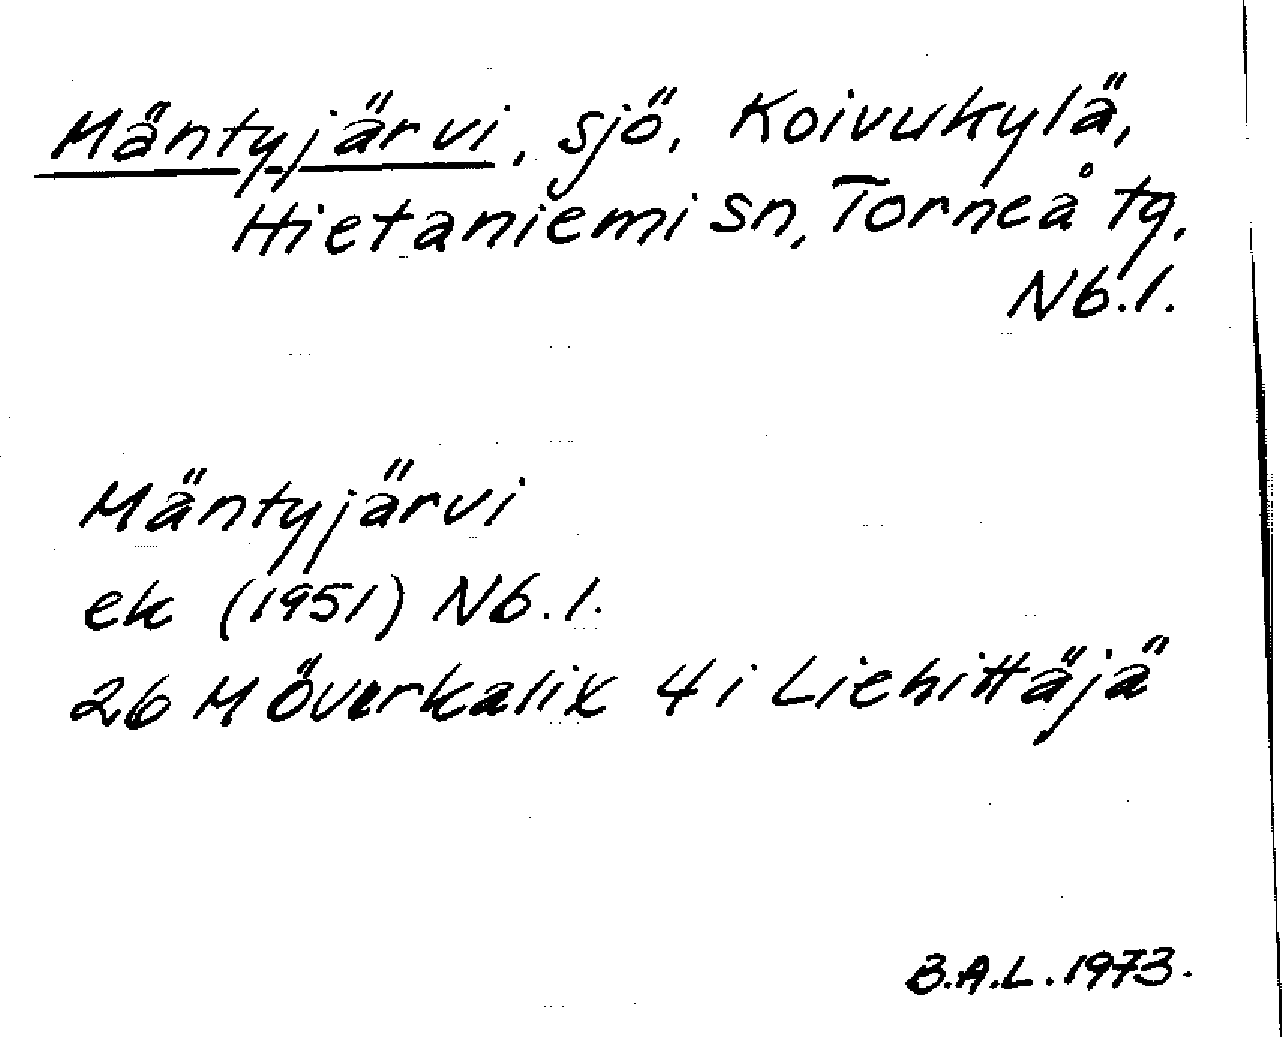 Mäntyjärvi, sjö, Koivukylä,
Hietaniemi sn, Torneå tg,
Nb.l.
Mäntyjärvi
ek (1951) Nb.l.
26 M Överkalix 4 i Liehittäjä
B.A.L. 1973.